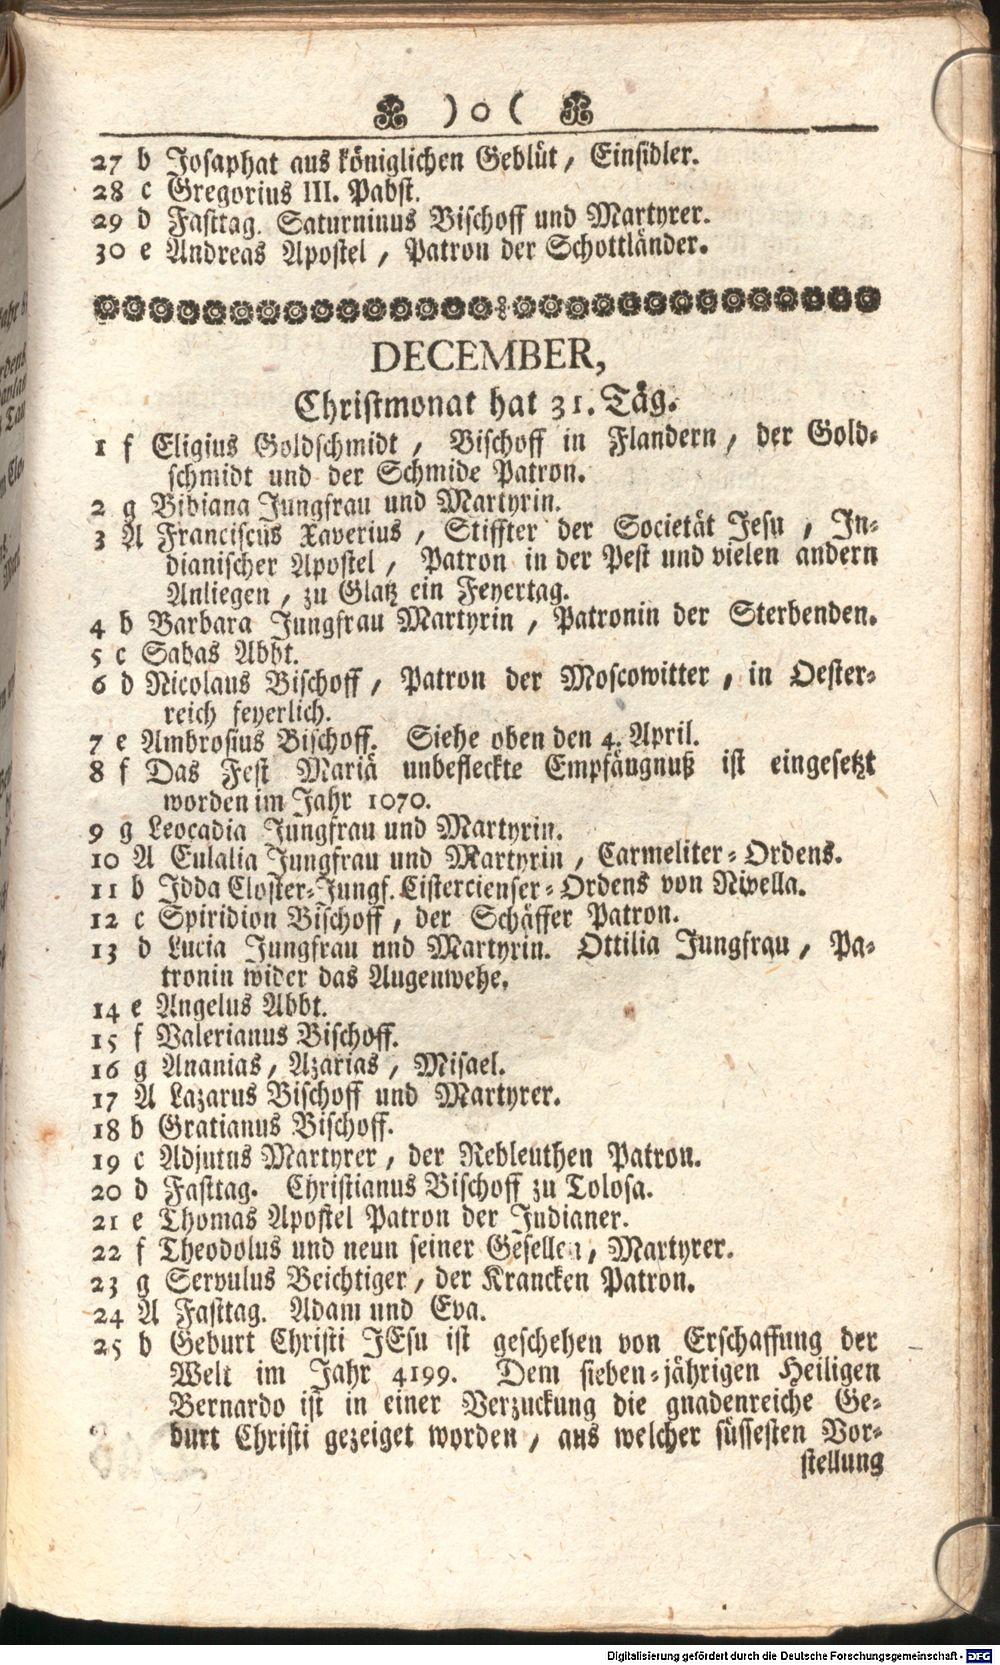 ) o (
27 b Josaphat aus königlichen Geblüt, Einsidler.
28 c Gregorius III. Pabst.
29 d Fasttag. Saturninus Bischoff und Martyrer.
30 e Andreas Apostel, Patron der Schottländer.
DECEMBER,
Christmonat hat 31. Täg.
1 f Eligius Goldschmidt, Bischoff in Flandern, der Gold-
schmidt und der Schmide Patron.
2 g Bibiana Jungfrau und Martyrin.
3 A Franciscus Xaverius, Stiffter der Societät Jesu, In-
dianischer Apostel, Patron in der Pest und vielen andern
Anliegen, zu Glatz ein Feyertag.
4 b Barbara Jungfrau Martyrin, Patronin der Sterbenden.
5 c Sabas Abbt.
6 d Nicolaus Bischoff, Patron der Moscowitter, in Oester-
reich feyerlich.
7 e Ambrosius Bischoff. Siehe oben den 4. April.
8 f Das Fest Mariä unbefleckte Empfängnuß ist eingesetzt
worden im Jahr 1070.
9 g Leocadia Jungfrau und Martyrin.
10 A Eulalia Jungfrau und Martyrin, Carmeliter-Ordens.
11 b Idda Closter-Jungf. Cistercienser-Ordens von Nivella.
12 c Spiridion Bischoff, der Schäffer Patron.
13 d Lucia Jungfrau und Martyrin. Ottilia Jungfrau, Pa-
tronin wider das Augenwehe.
14 e Angelus Abbt.
15 f Valerianus Bischoff.
16 g Ananias, Azarias, Misael.
17 A Lazarus Bischoff und Martyrer.
18 b Gratianus Bischoff.
19 c Adjutus Martyrer, der Rebleuthen Patron.
20 d Fasttag. Christianus Bischoff zu Tolosa.
21 e Thomas Apostel Patron der Indianer.
22 f Theodolus und neun seiner Gesellen, Martyrer.
23 g Servulus Beichtiger, der Krancken Patron.
24 A Fasttag. Adam und Eva.
25 b Geburt Christi JEsu ist geschehen von Erschaffung der
Welt im Jahr 4199. Dem sieben-jährigen Heiligen
Bernardo ist in einer Verzuckung die gnadenreiche Ge-
burt Christi gezeiget worden, aus welcher süssesten Vor-
stellung
Digitalisierung gefördert durch die Deutsche Forschungsgemeinschaft - DFG